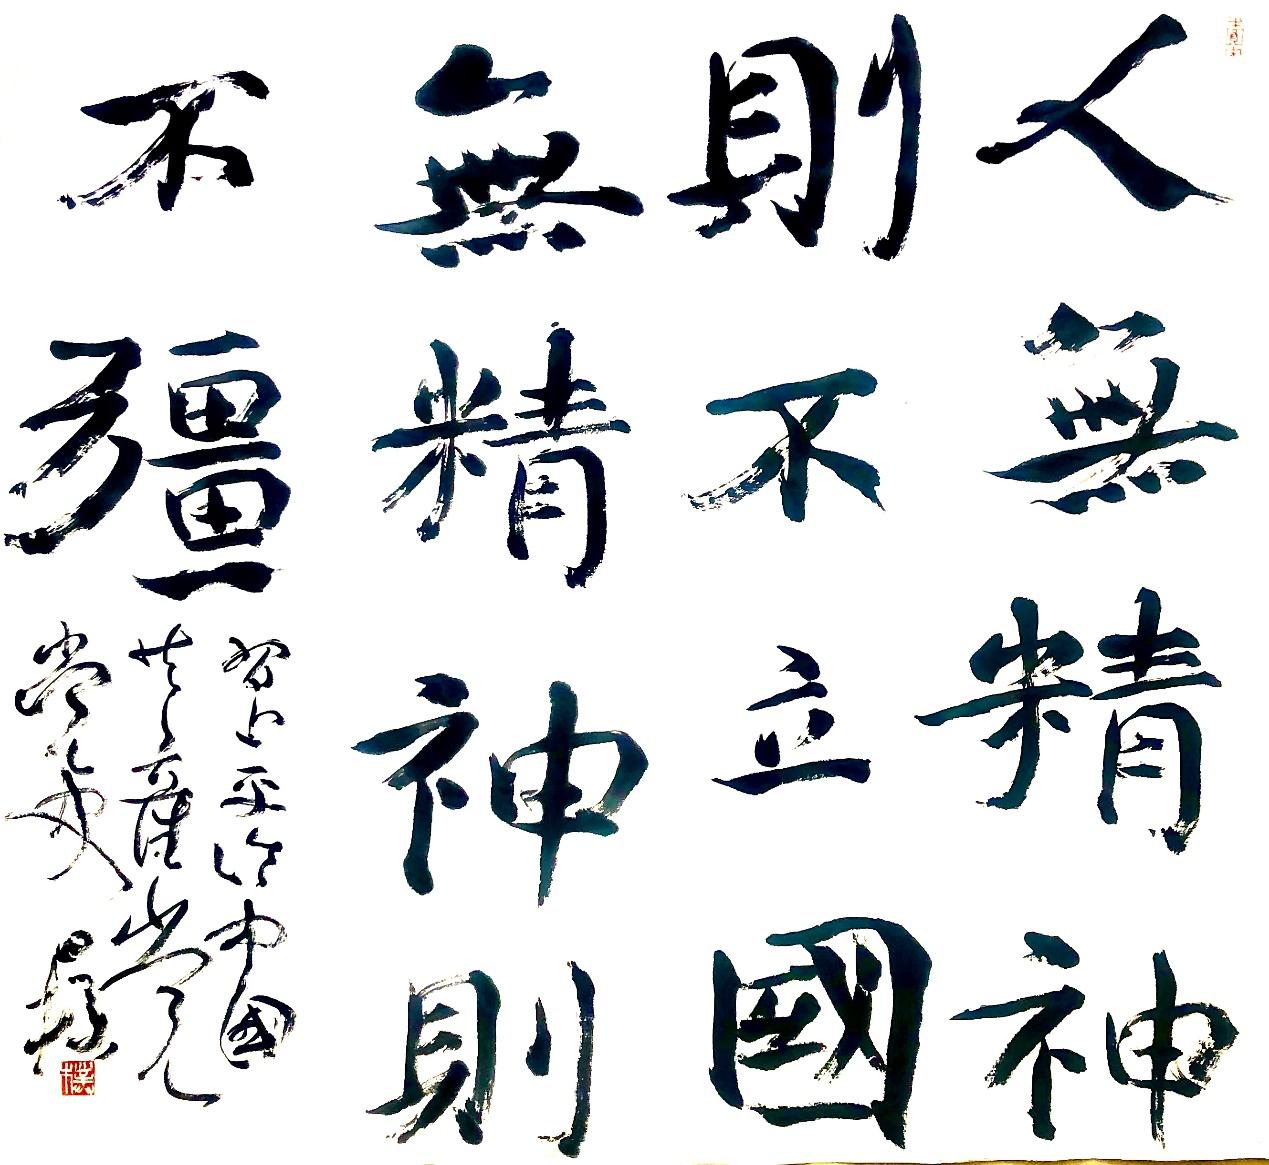 人無精神
則不立國
無精神則
不彊
習近平論中國
共產黨